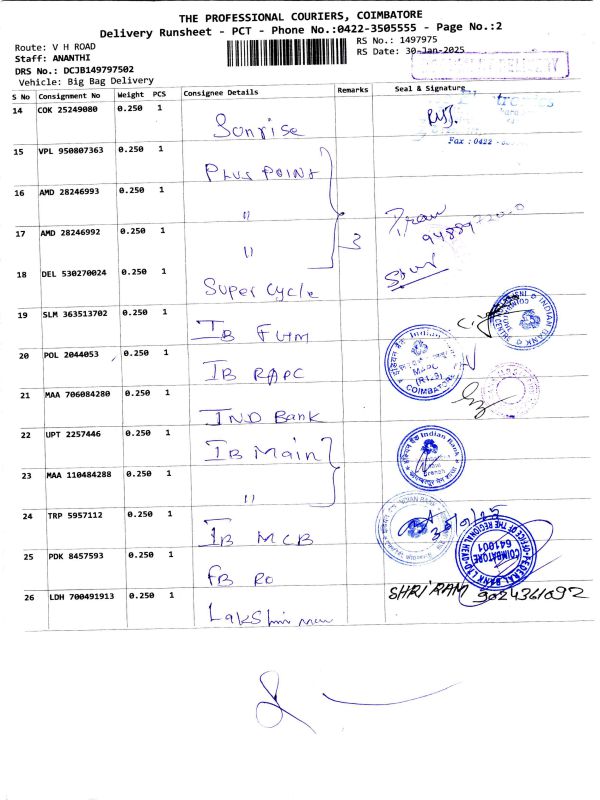 THE PROFESSIONAL COURIERS, COIMBATORE
Delivery Runsheet - PCT - Phone No.:0422-3505555 - Page No.:2
Route: V H ROAD
RS No.: 1497975
Staff: ANANTHI
RS Date: 30-Jan-2025
DRS No.: DCJB149797502
Vehicle: Big Bag Delivery
S No Consignment No Weight PCS Consignee Details Remarks Seal & Signature
14 COK 25249080 0.250 1 Sunrise
Fax : 0422 -
15 VPL 950807363 0.250 1 PLUS POINT
16 AMD 28246993 0.250 1 "
17 AMD 28246992 0.250 1 " 3
18 DEL 530270024 0.250 1 Super Cycle
19 SLM 363513702 0.250 1 IB FUIM
INDIAN BANK
20 POL 2044053 0.250 1 IB RAPC
Indian
MAPC
COIMBATORE
21 MAA 706084280 0.250 1 IND Bank
22 UPT 2257446 0.250 1 IB Main
Indian Bank
Branch
23 MAA 110484288 0.250 1 "
24 TRP 5957112 0.250 1 IB MCB
25 PDK 8457593 0.250 1 FB RO
FEDERAL BANK LTD. OFFICE OF THE REGIONAL HEAD
COIMBATORE
641001
26 LDH 700491913 0.250 1 SHRI RAM 9024361092